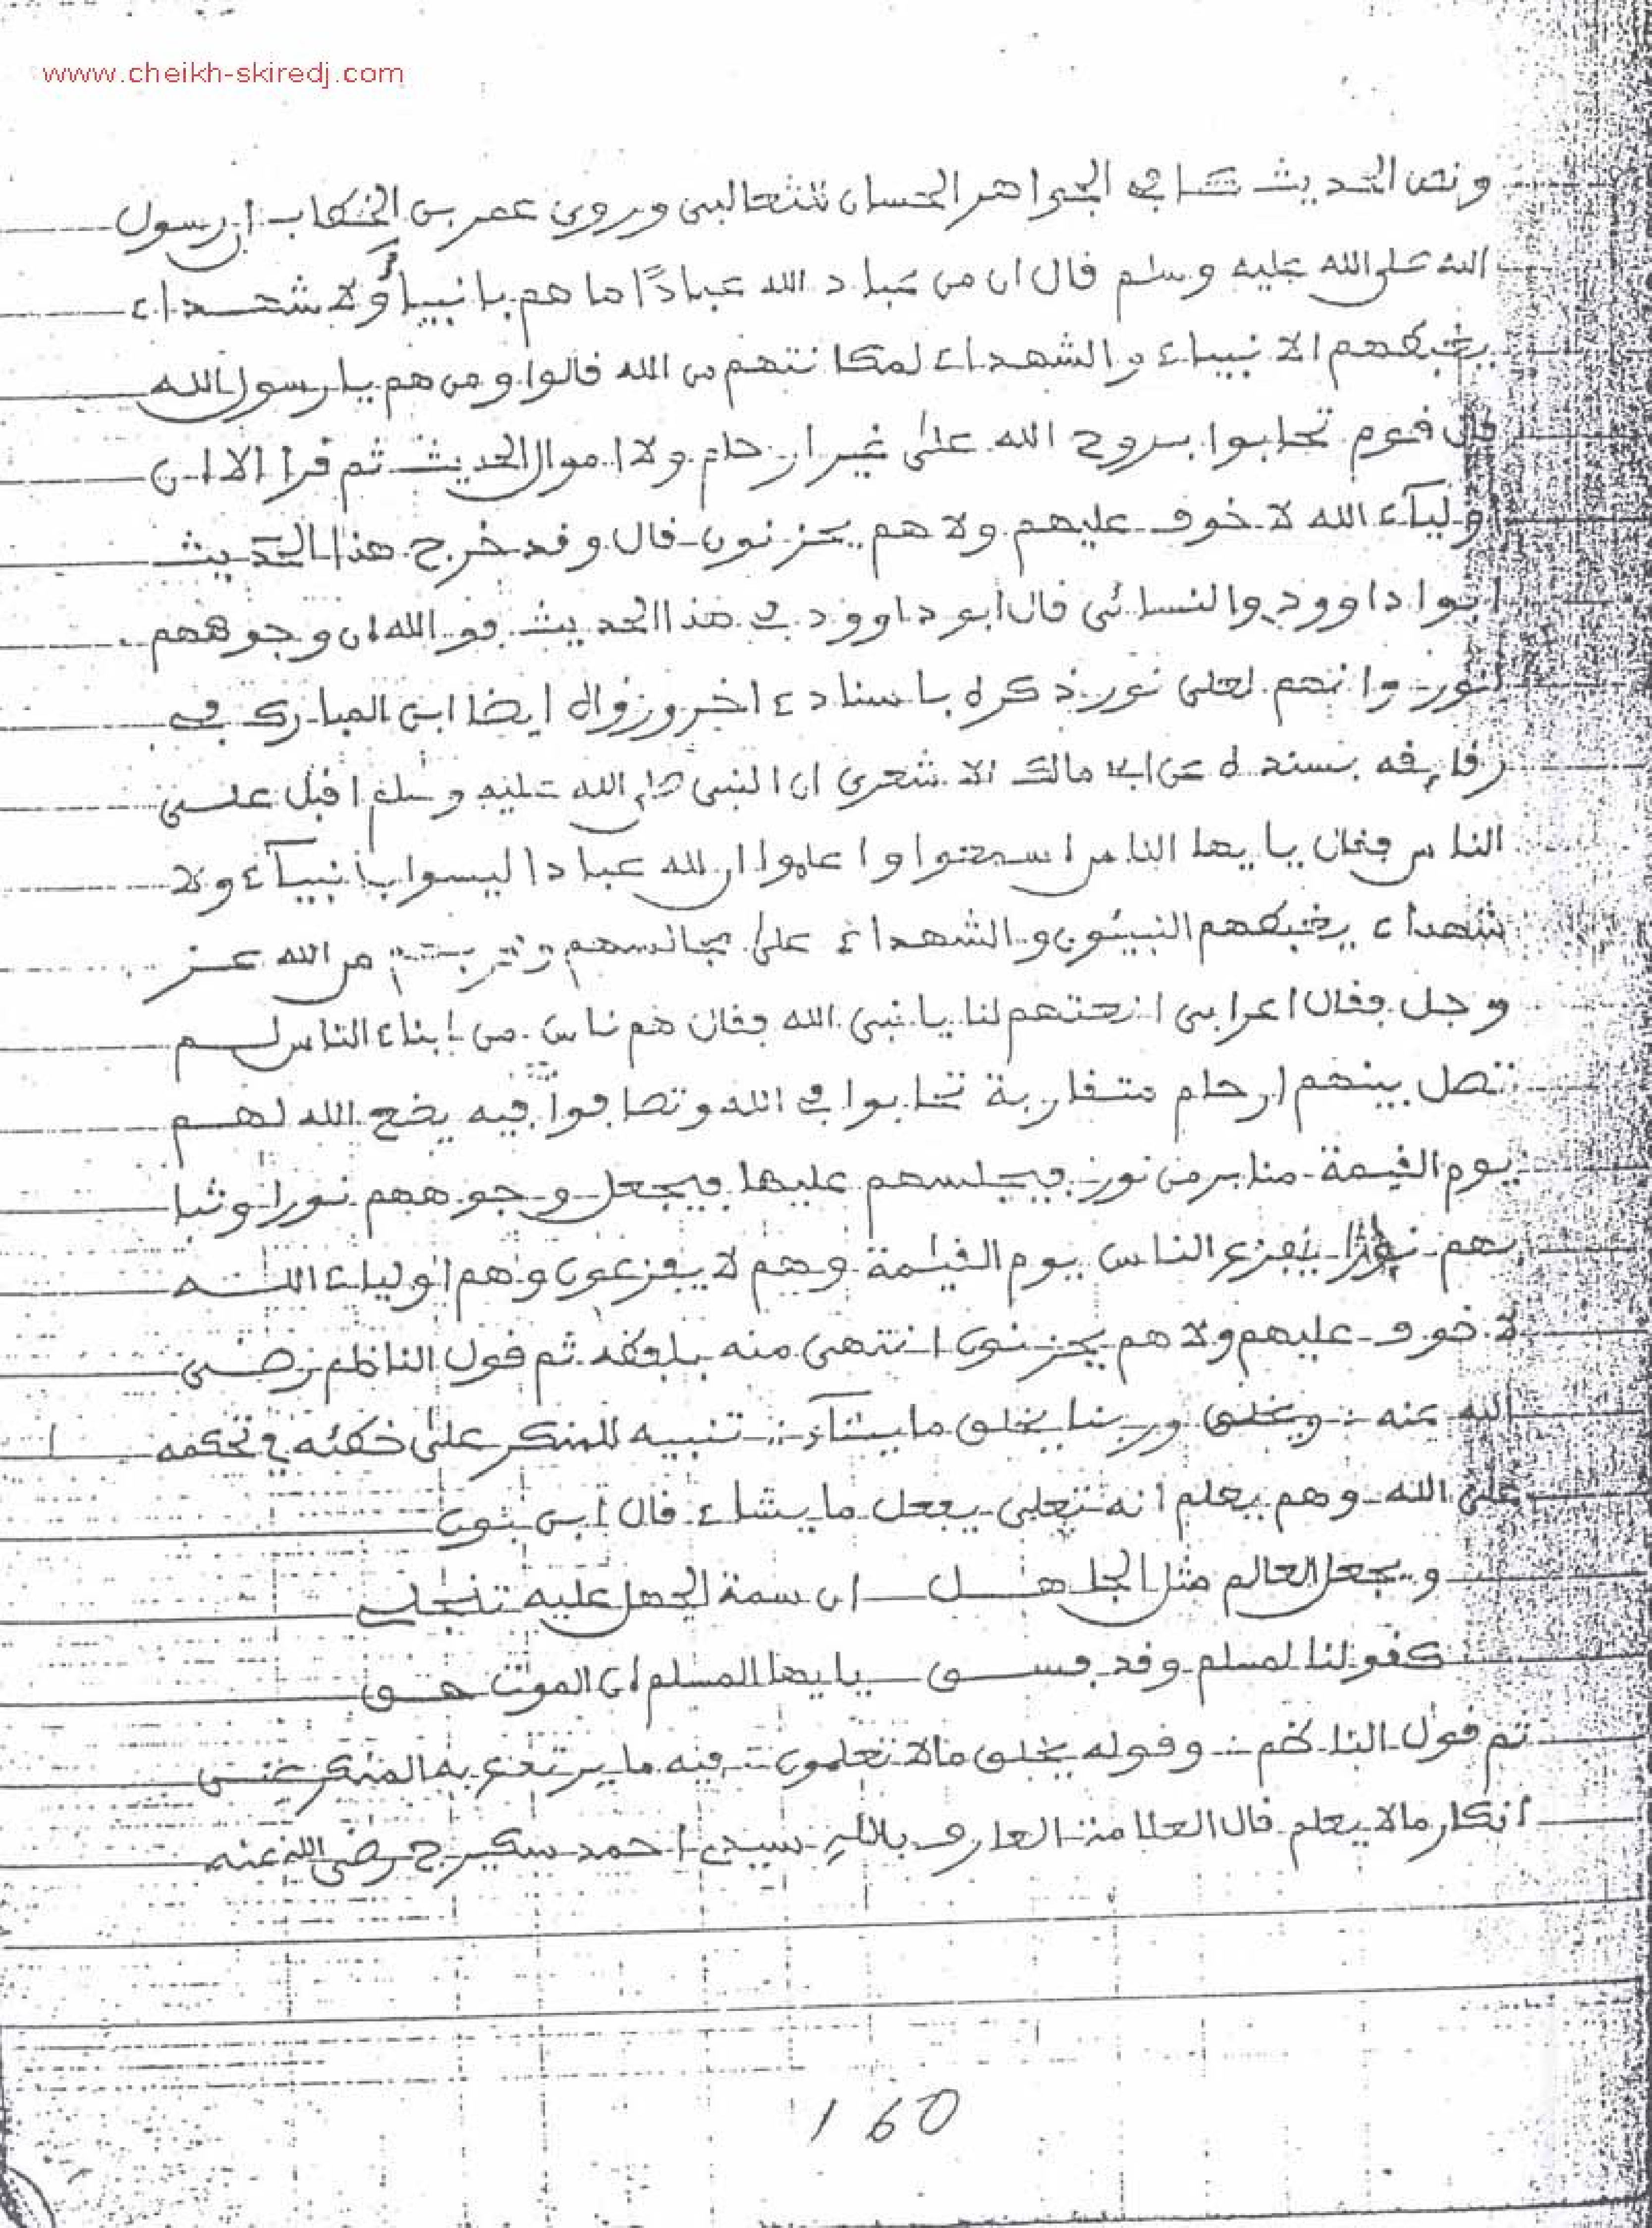 www.cheikh-skiredj.com
ونص الحديث كما في الجواهر الحسان للثعالبي وروى عمر بن الخطاب ان رسول
الله صلى الله عليه وسلم قال ان من عباد الله عبادًا ما هم بانبياء ولا شهداء
يغبطهم الانبياء والشهداء لمكانتهم من الله قالوا ومن هم يا رسول الله
قال قوم تحابوا بروح الله على غير ارحام ولا اموال الحديث ثم قرا الا ان
اولياء الله لا خوف عليهم ولا هم يحزنون قال وقد خرج هذا الحديث
ابوا داوود والنسائي قال أبو داوود في هذا الحديث فو الله ان وجوههم
لنور وانهم لعلى نور ذكره باسناد ءاخر ورواه ايضا ابن المبارك في
رقايقه بسنده عن ابي مالك الاشعري ان النبي صلى الله عليه وسلم اقبل على
الناس فقال يايها الناس اسمعوا واعلموا ان لله عبادا ليسوا بانبياء ولا
شهداء يغبطهم النبيئون والشهداء على مجالسهم وقربهم من الله عز
وجل فقال اعرابي انعتهم لنا يا نبي الله فقال هم ناس من ابناء الناس لم
تصل بينهم ارحام متقاربة تحابوا في الله وتصافوا فيه يضع الله لهم
يوم القيمة منابر من نور فيجلسهم عليها فيجعل وجوههم نورا وثيا
بهم نورا يفزع الناس يوم القيمة وهم لا يفزعون وهم اولياء الله
لا خوف عليهم ولا هم يحزنون انتهى منه بلفظه ثم قول الناظم رضي
الله عنه ∴ ويخلق وربنا يخلق ما يشاء ∴ تنبيه للمنكر على خطئه في تحكمه
على الله وهم يعلم انه تعلى يفعل ما يشاء قال ابن بون
ويجعل العالم مثل الجاهل ان سمة الجهل عليه تنجلي
كقولنا لمسلم وقد فسق يايها المسلم ان الموت حق
ثم قول الناظم ∴ وقوله يخلق مالا تعلمون ∴ فيه ما يرتدع به المنكر عن
انكار مالا يعلم قال العلامة العارف بالله سيدي احمد سكيرج رضي الله عنه
160